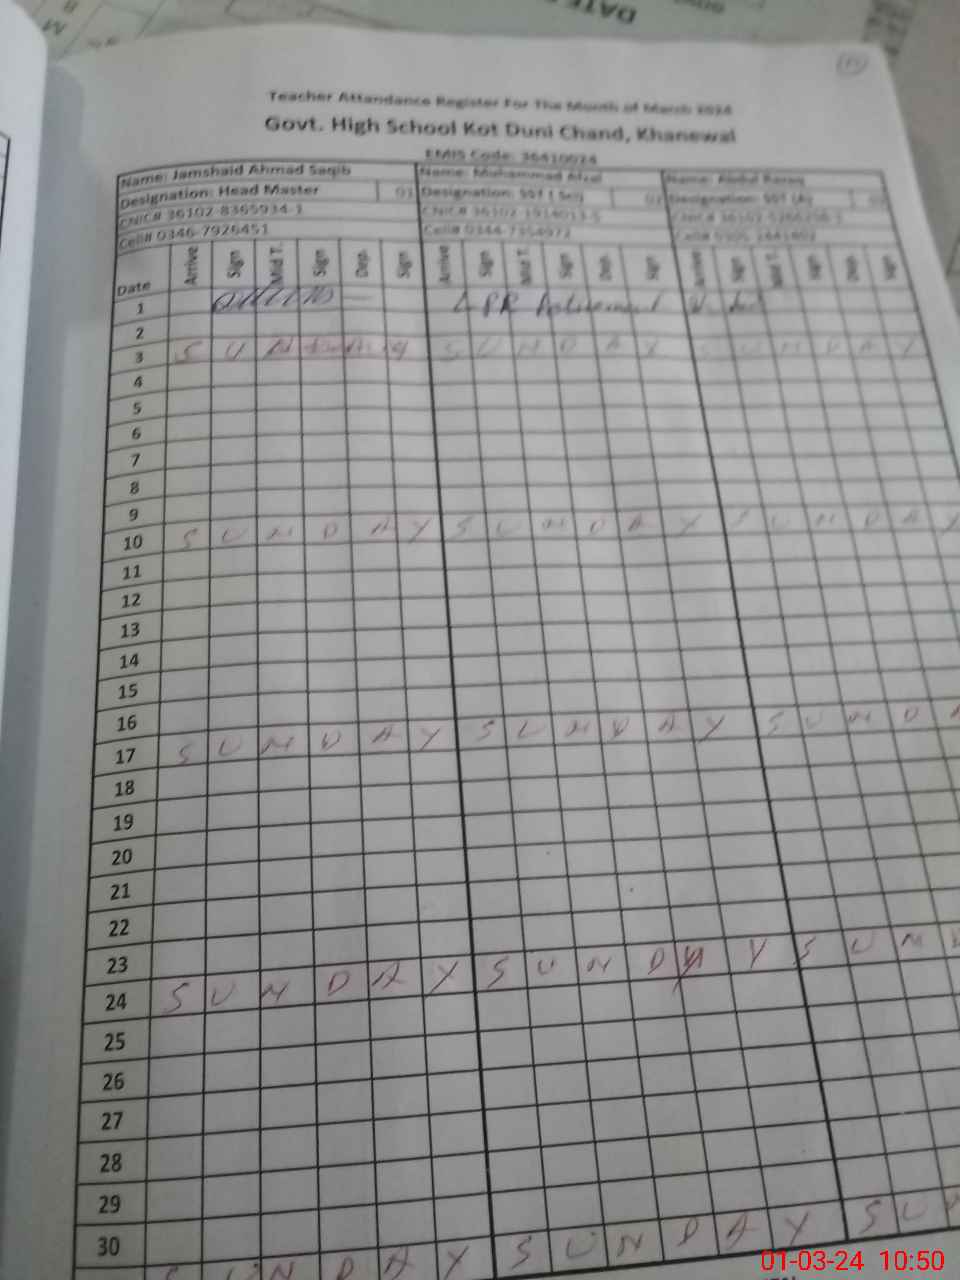 DATE
Teacher Attandance Register For The Month of March 2024
Govt. High School Kot Duni Chand, Khanewal
EMIS Code: 36410024
Name: Jamshaid Ahmad Saqib Name: Muhammad Afzal Name: Abdul
Designation: Head Master 01 Designation: SST ( Sci) 02 Designation: SST (A)
CNIC# 36102-8365934-1 CNIC#
Cell# 0346-7926451 Cell# Cell#
Date Arrive Sign Mid T. Sign Dep. Sign Arrive Sign Mid T. Sign Dep. Sign Arrive Sign Mid T. Sign Dep. Sign
1 LPR
2
3 S U N D A Y S U N D A Y S U N D A Y
4
5
6
7
8
9
10 S U N D A Y S U N D A Y S U N D A Y
11
12
13
14
15
16
17 S U N D A Y S U N D A Y S U N D A
18
19
20
21
22
23
24 S U N D A Y S U N D A Y S U N D
25
26
27
28
29
30
S U N D A Y S U N D A Y S U N
01-03-24 10:50